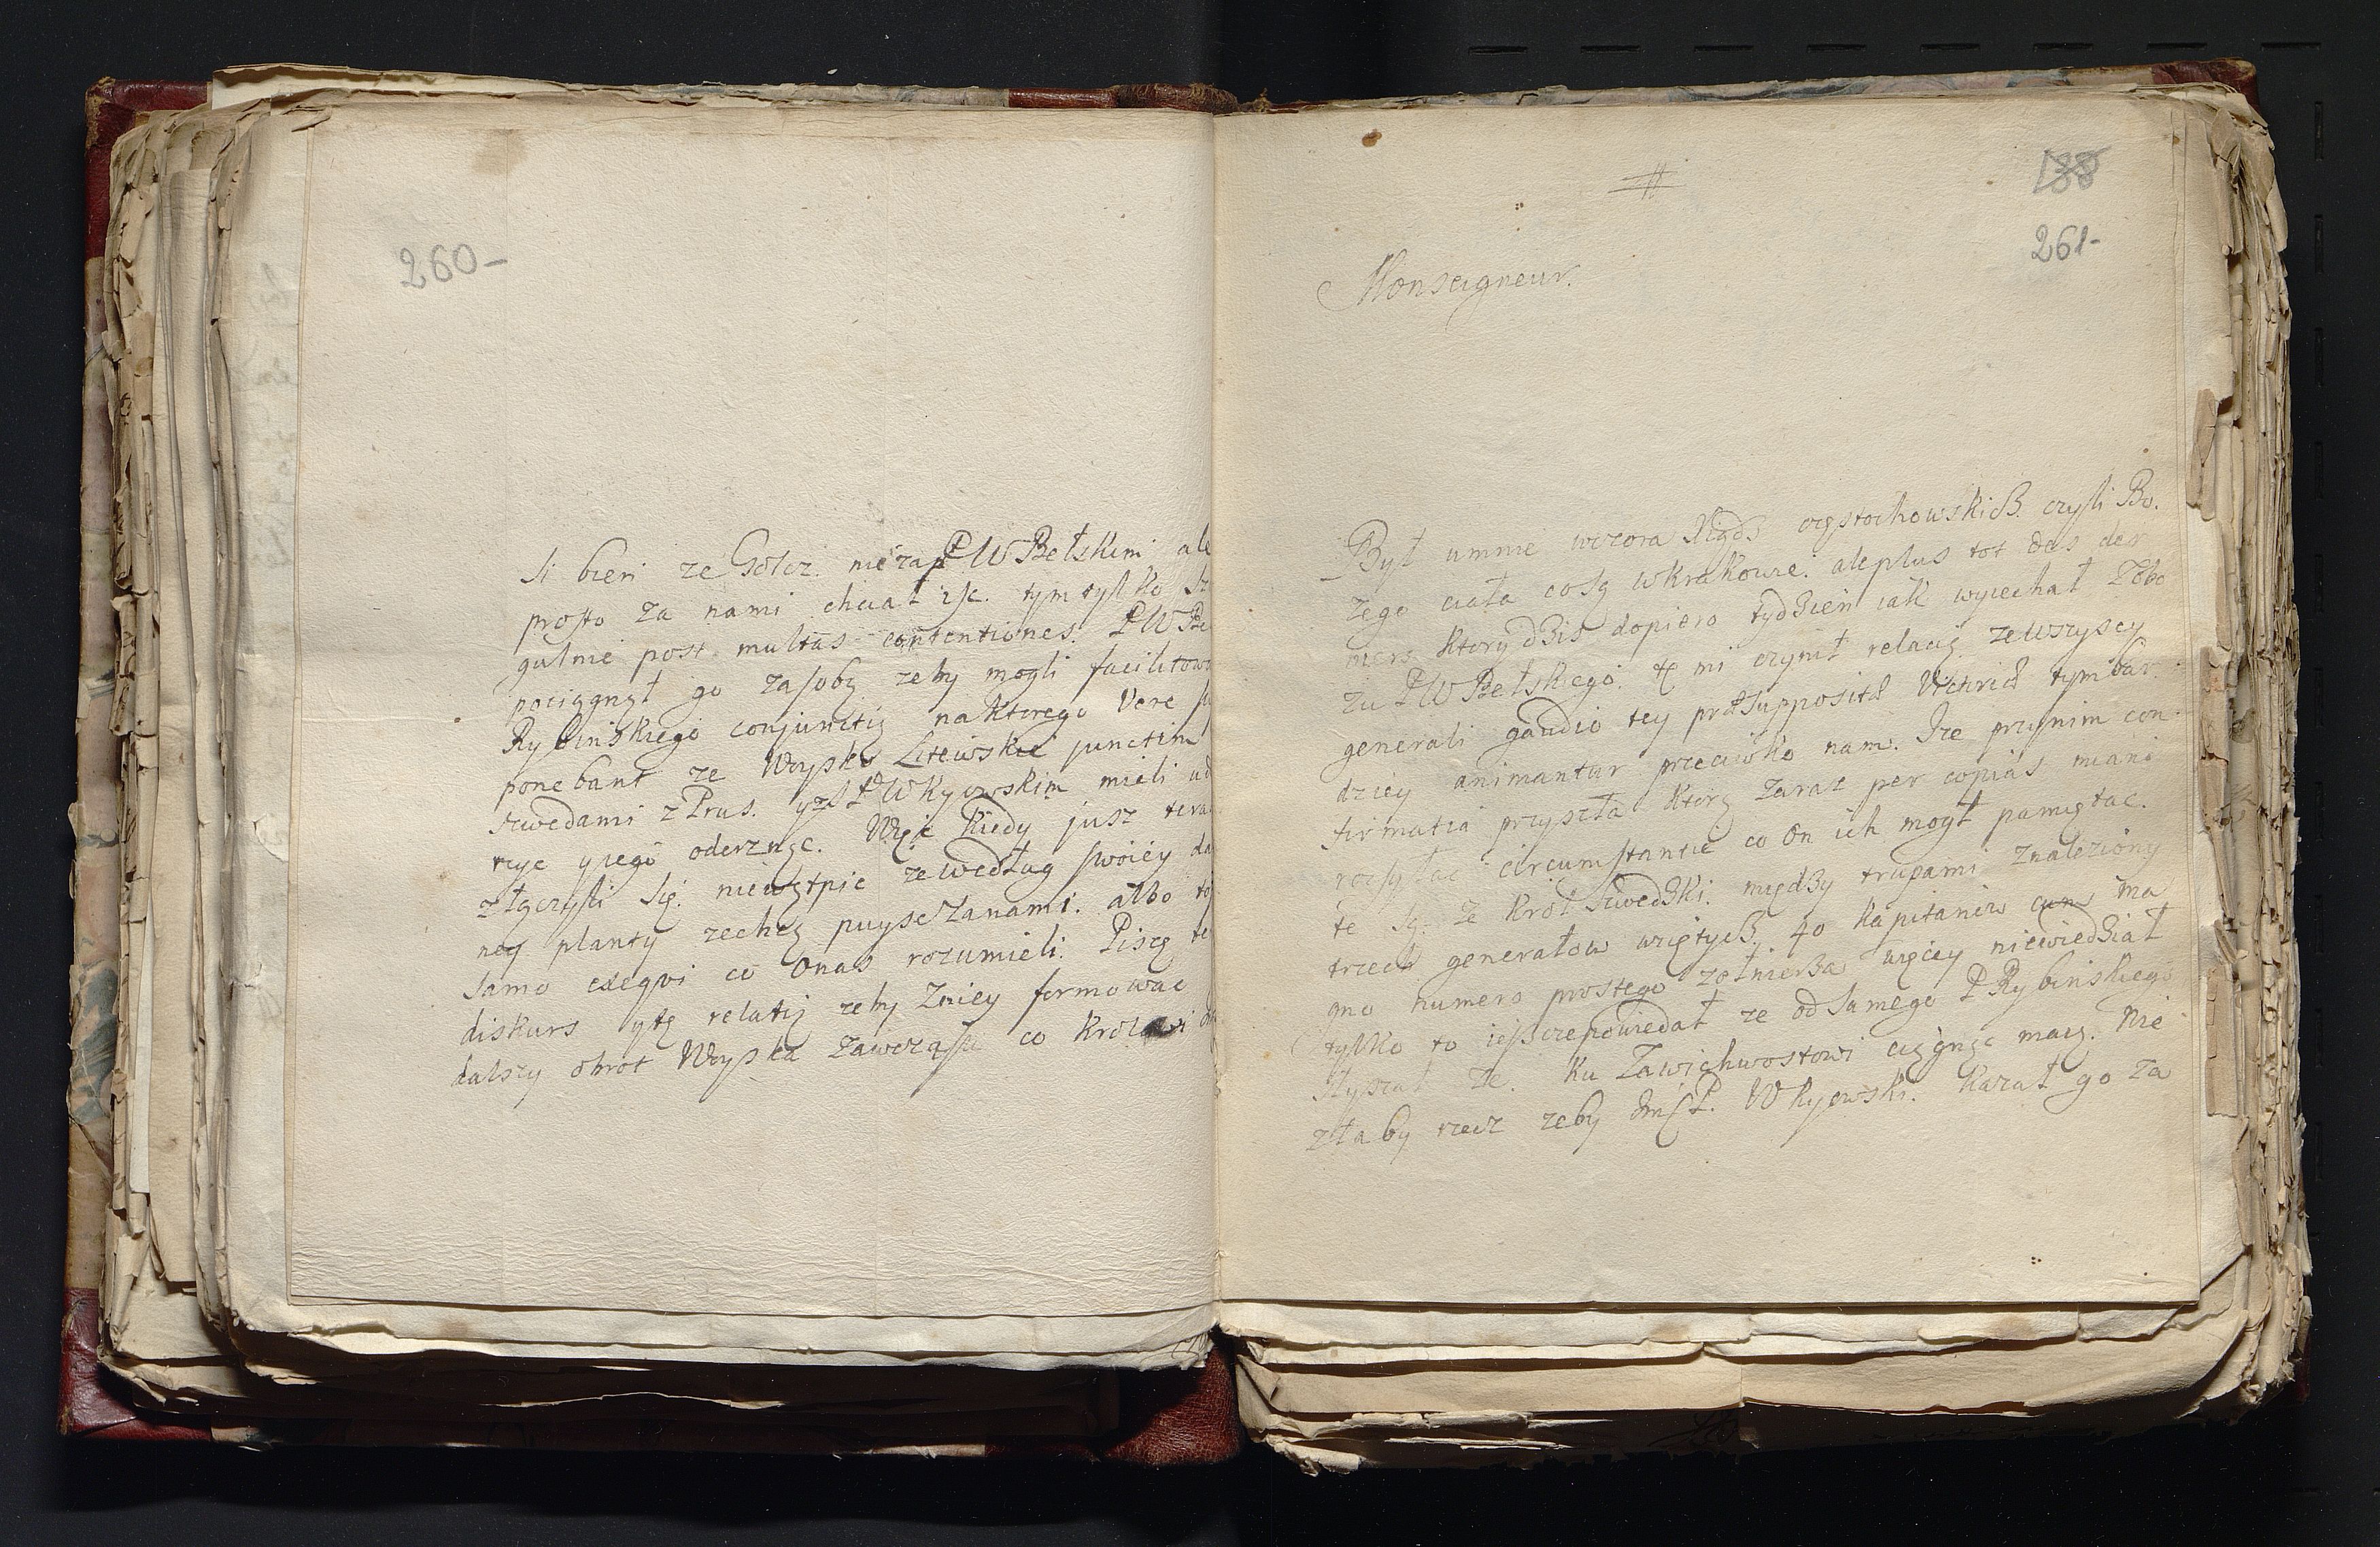 260-
li bien ze Goltz. nie za P W Bełskim ale
prosto za nami chciał isc. tym tylko
gulnie post multas contentiones. P W Be
pociągnął go za sobą zeby mogli facilitow
Rybinskiego conjunctią na ktorego Vere
ponebant ze Woysko Litewskie junctim
szwedami z Prus. yz P W Kyowskim mieli ud
rzyc y jego oderznąc. Więc kiedy jusz tera
złączyli się. niewątpię ze według swoiey da
ney planty zechcą puysc za nami. albo to
samo exeqvi co Onas rozumieli. Piszę te
diskurs y tę relatią zeby Zniey formowac
dalszy obrot Woyska zawczasu co Krolowi
138
261-
Monseigneur.
Był umnie wczora Xiądz częstochowskich. czyli Bo.
zego ciała co są w Krakowie. ale plus tot des der
niers ktory dzis dopiero tydzien iak wyiechał z obo
zu P W Bełskiego. tę mi czynił relacią. ze wszyscy
generali gaudio tey præsuppositæ Victoriæ tym bar.
dziey animantur przeciwko nam. Ize przynim con.
firmatia przyszła ktorą zaraz per copias miano
rozsyłac circumstantie co On ich mogł pamiętac.
te są. ze Krol szwedzki. między trupami znaleziony
trzech generałow wziętych. 40 kapitanow cum ma
gno numero prostego zołnierza więcey niewiedział
tylko to ieszcze powiedał ze od samego P Rybinskiego
słyszał ze. ku Zawichwostowi ciągnąc maią. Nie
zła by rzecz zeby Jmć P. W Kyowski. kazał go za